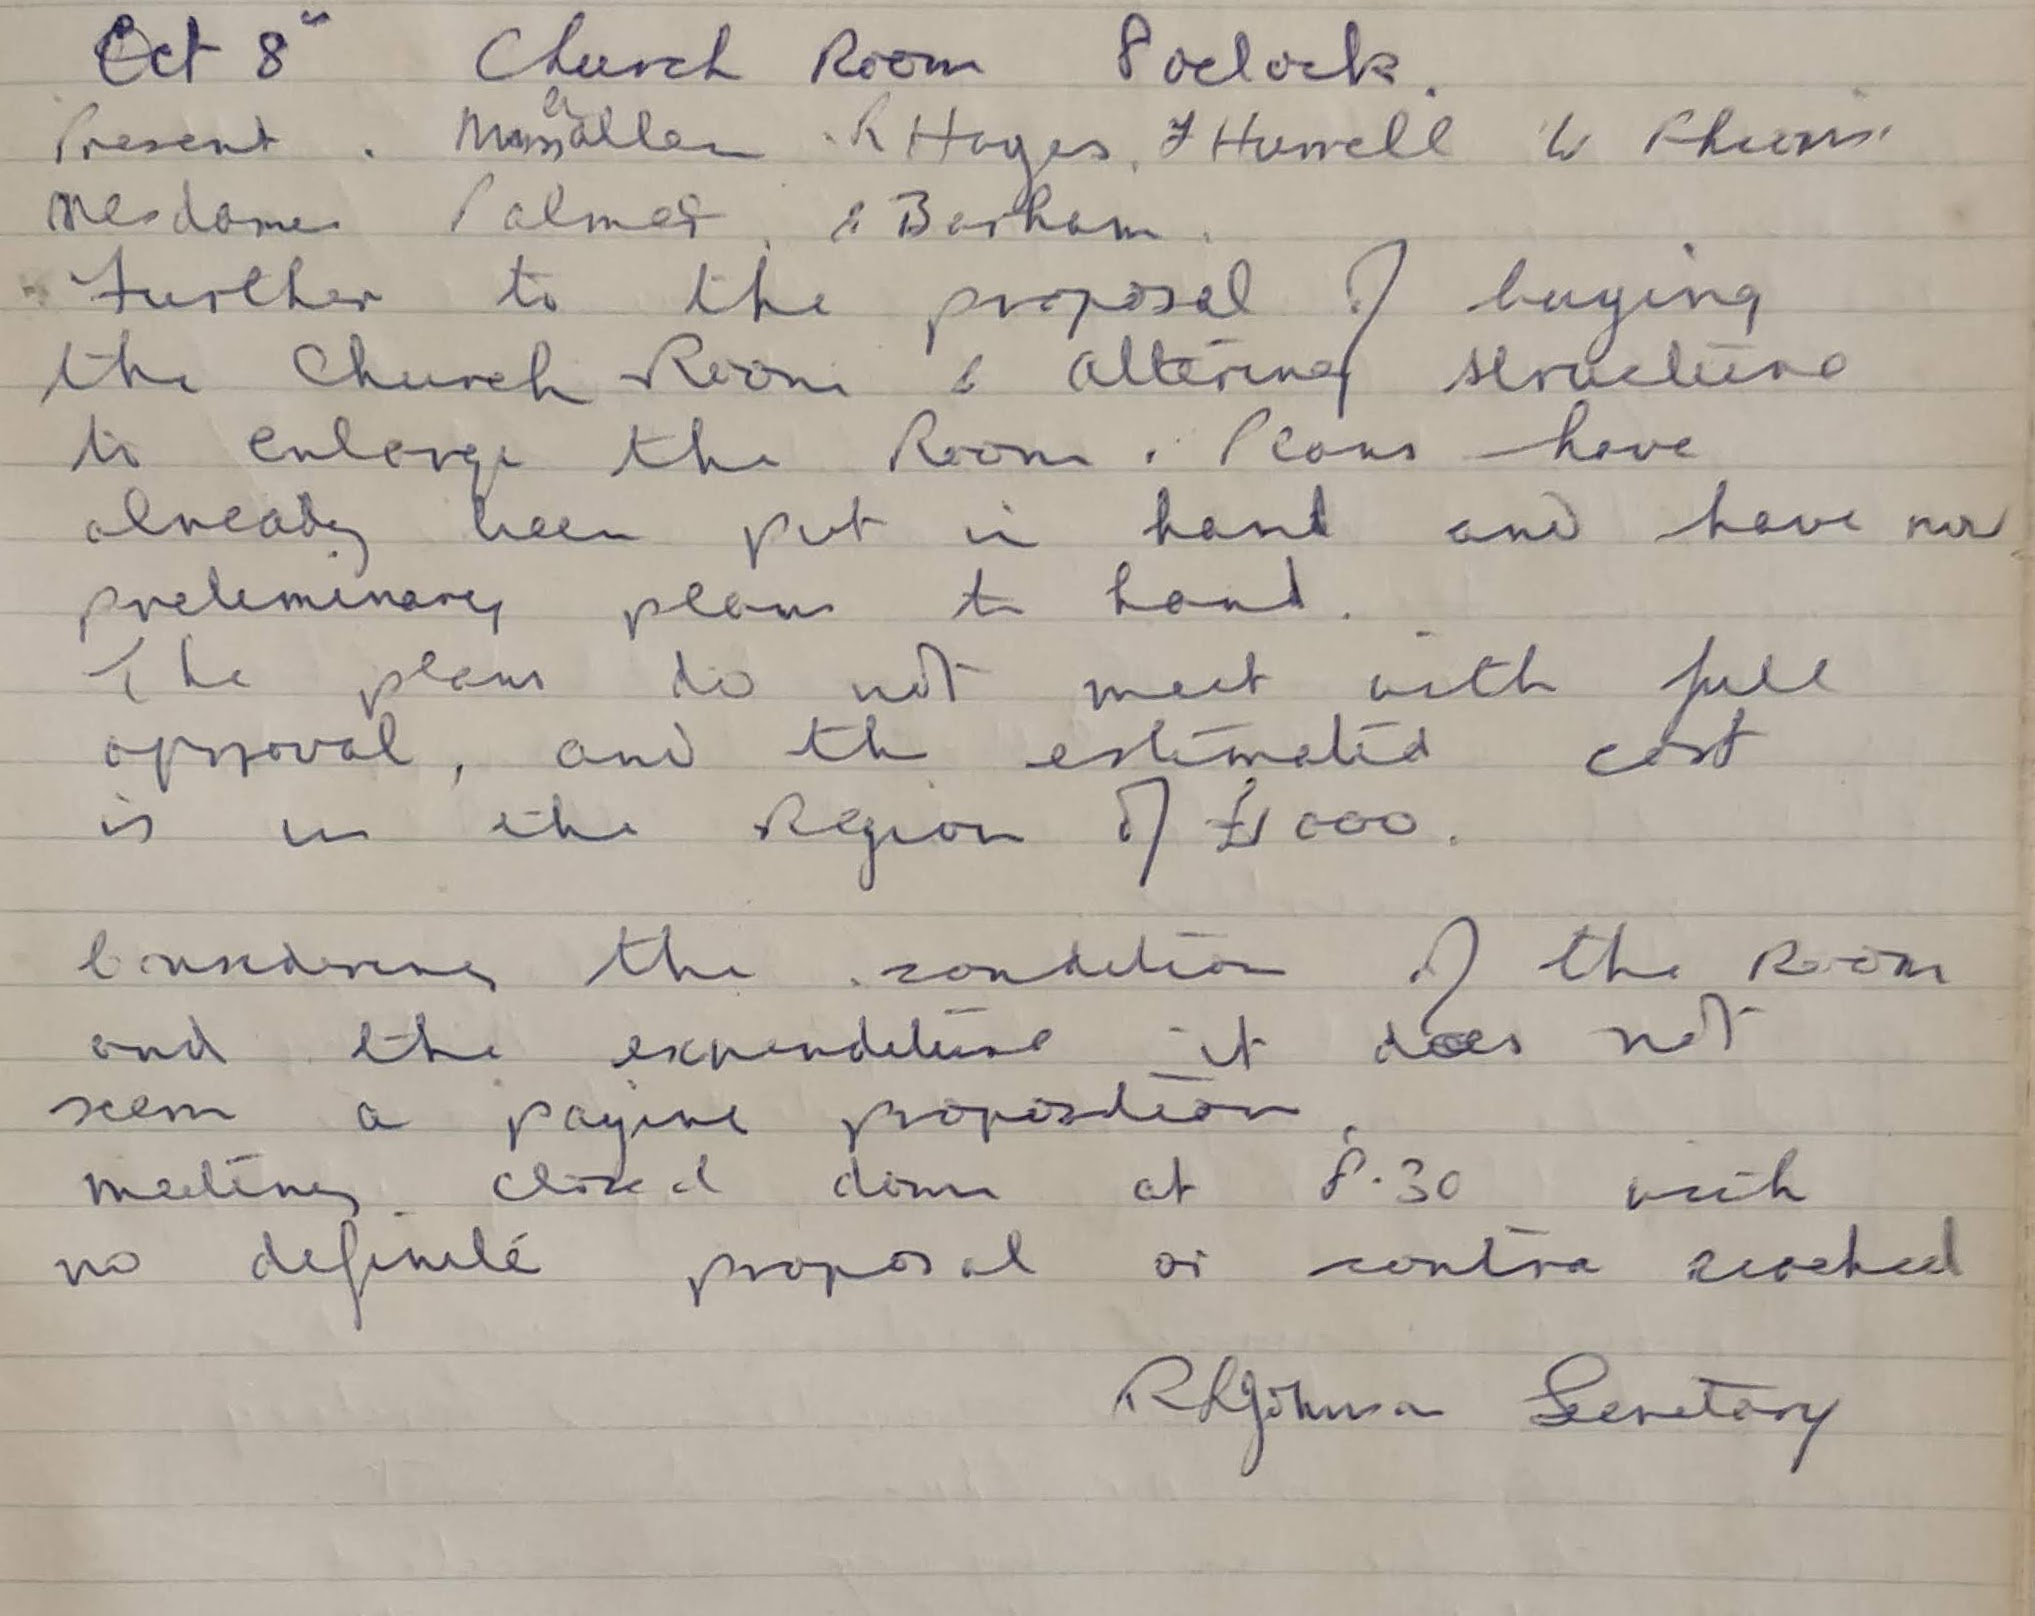 Oct 8th Church Room 8 oclock.
Present. Messrs Allen. R Hayes. F Hurrell W
Mesdames Palmer, & Barham.
Further to the proposal of buying
the Church Room & altering structure
to enlarge the Room. Plans have
already been put in hand and have now
preliminary plans to hand.
The plans do not meet with full
approval, and the estimated cost
is in the Region of £1000.
Considering the condition of the Room
and the expenditure it does not
seem a paying proposition.
Meeting closed down at 8.30 with
no definite proposal or contra reached
R L Johnson Secretary